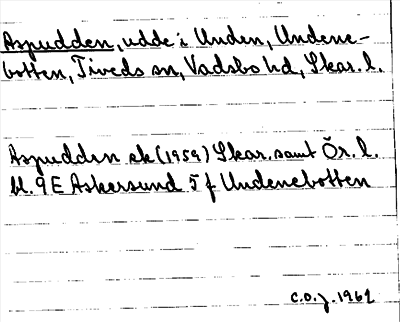 Aspudden, udde i Unden, Undene-
botten, Tiveds sn, Vadsbo hd, Skar. l.
Aspudden ek (1959) Skar. samt Ör. l.
bl. 9E Askersund 5 f Undenebotten
C.O.J. 1962